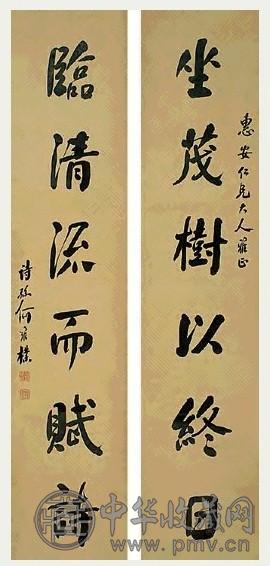 惠安仁兄大人雅正
坐茂樹以終日
臨清流而賦詩
詩孫何維樸
中华收藏网
www.pmv.cn